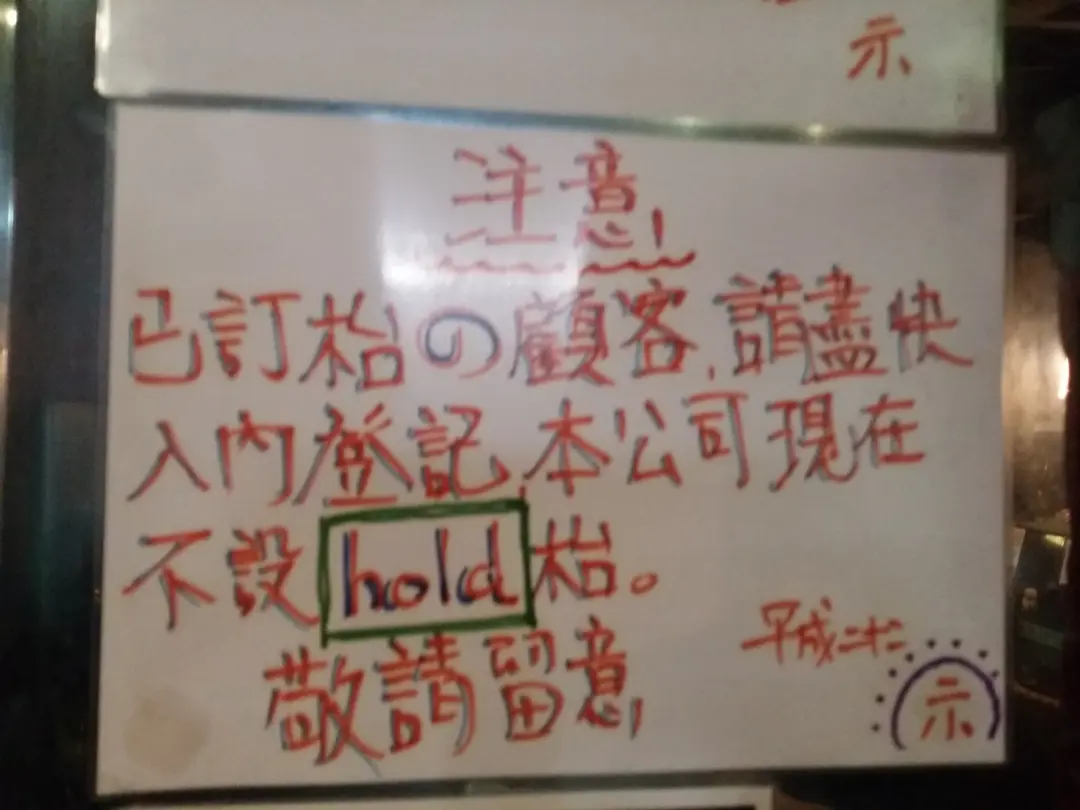 示
注意
已訂枱の顧客,請盡快
入內登記,本公司現在
不設hold枱。
敬請留意
平成
示